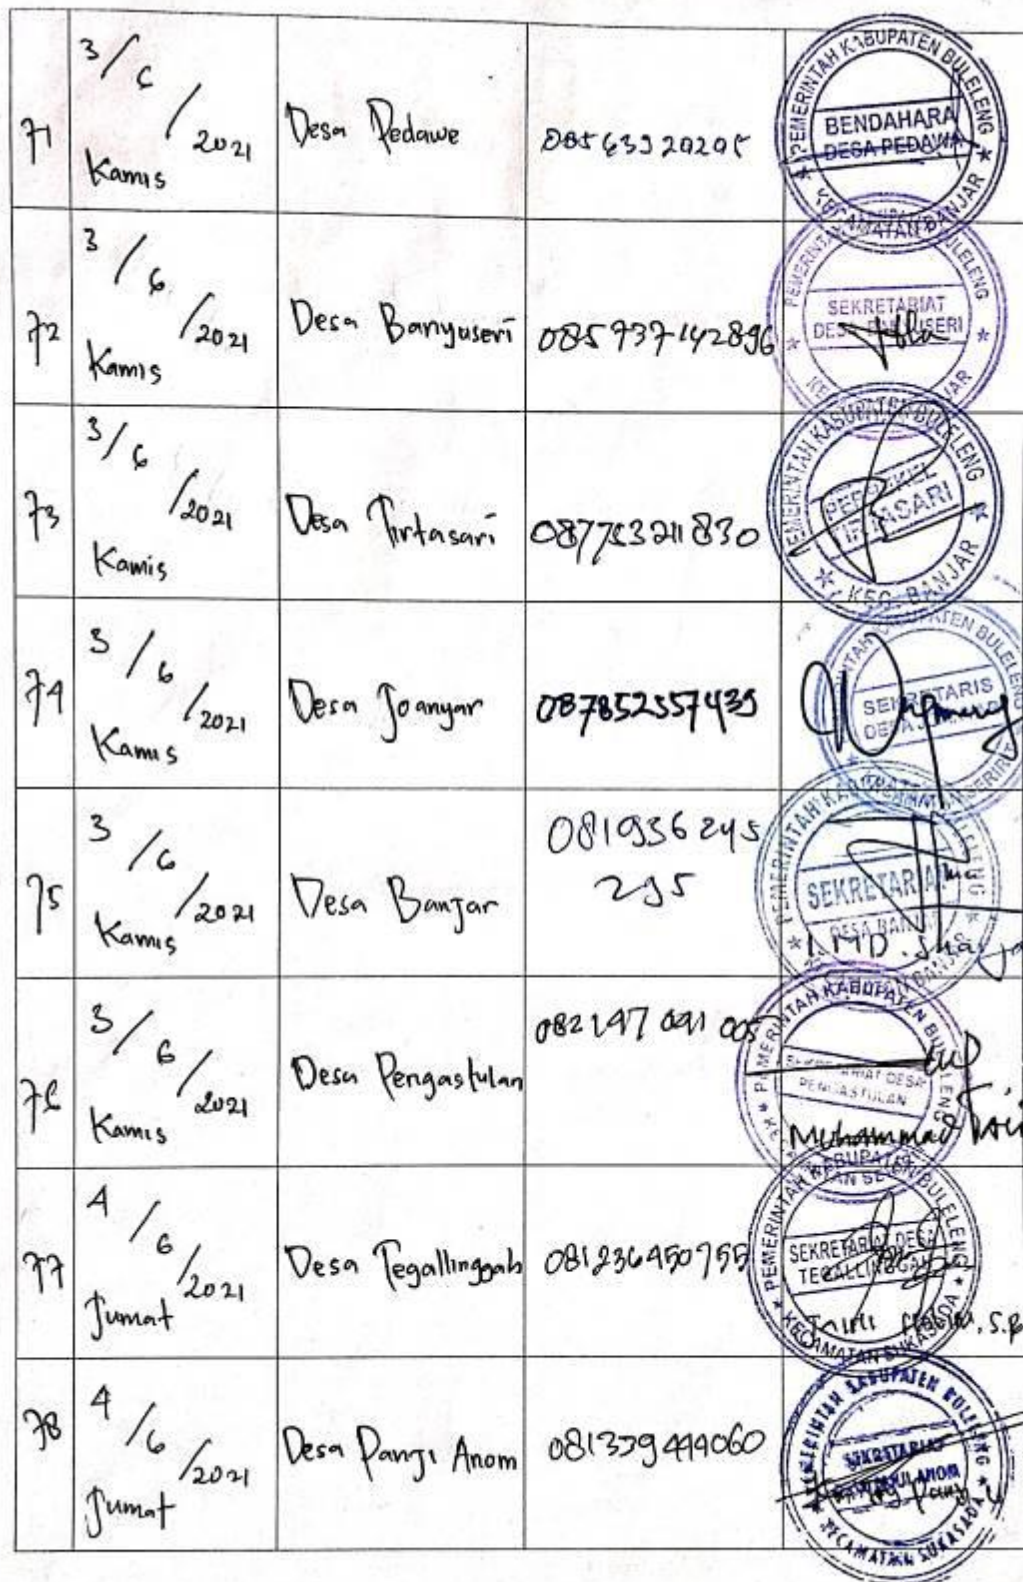 71
3/6/2021
Kamis
Desa Pedawe
PEMERINTAH KABUPATEN BULELENG
BENDAHARA
DESA PEDAWA
KECAMATAN BANJAR
72
3/6/2021
Kamis
Desa Banyuseri
085737142896
SEKRETARIAT
73
3/6/2021
Kamis
Desa Tirtasari
PEMERINTAH KABUPATEN BULELENG
KEC. BANJAR
74
3/6/2021
Kamis
Desa Joanyar
087852557439
KABUPATEN BULELENG
SEKRETARIS
75
3/6/2021
Kamis
Desa Banjar
081936245
295
PEMERINTAH
SEKRETARIAT
DESA BANJAR
76
3/6/2021
Kamis
Desa Pengastulan
082197 091 005
PEMERINTAH KABUPATEN BULELENG
SEKRETARIAT DESA
PENGASTULAN
Muhammad
77
4/6/2021
Jumat
Desa Tegallinggah
081236450755
PEMERINTAH KABUPATEN BULELENG
SEKRETARIAT DESA
TEGALLINGGAH
KECAMATAN SUKASADA
78
4/6/2021
Jumat
Desa Panji Anom
081339444060
PEMERINTAH KABUPATEN BULELENG
SEKRETARIAT
KECAMATAN SUKASADA